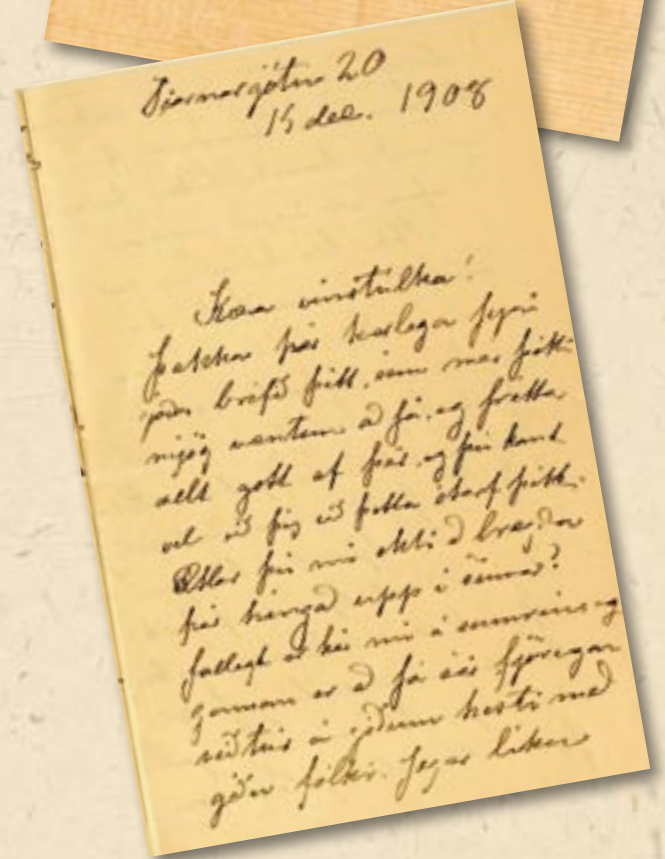 Tjarnargötu 20
15 dec. 1908
Kæra vinstúlka!
Þakka þér kærlega fyrir
bréfið þitt, sem mér þótti
mjög væntum að fá, og frétta
allt gott af þér, og þú kant
vel við þig við þetta starf þitt.
Ætlar þú nú ekki að bregða
þér hingað upp í sumar?
fallegt er hér nú á sumrin og
gaman er að fá sér fjörugan
reiðtúr á góðum hesti með
góðu fólki. þegar líkar